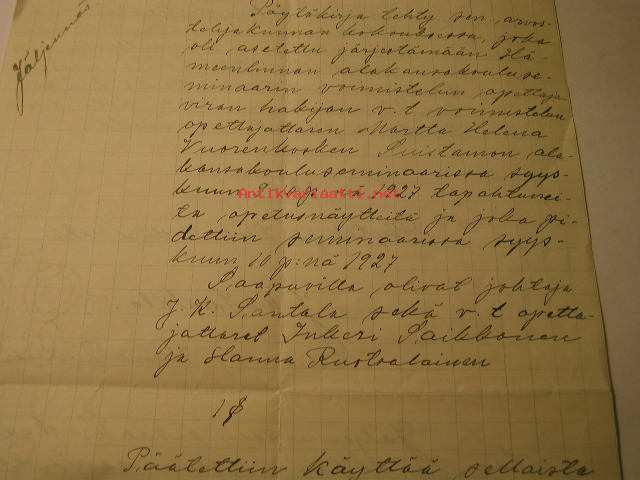 Jäljennös
Pöytäkirja tehty sen arvos-
telijakunnan kokouksessa, joka
oli asetettu järjestämään Hä-
meenlinnan alakansakouluse-
minaarin voimistelun opettaja-
viran hakijan v.t voimistelun
opettajattaren Martta Helena
Vuorenkosken Suistamon ala-
kansakouluseminaarissa syys-
kuun p:nä 1927 tapahtunei-
ta opetusnäytteitä ja joka pi-
dettiin seminaarissa syys-
kuun 10 p:nä 1927
Antikvariaatti.net
Saapuvilla olivat johtaja
J. K. Santala sekä v. t opetta-
jattaret Inkeri Saikkonen
ja Hanna Ruotsalainen
1 §
Päätettiin käyttää sellaista